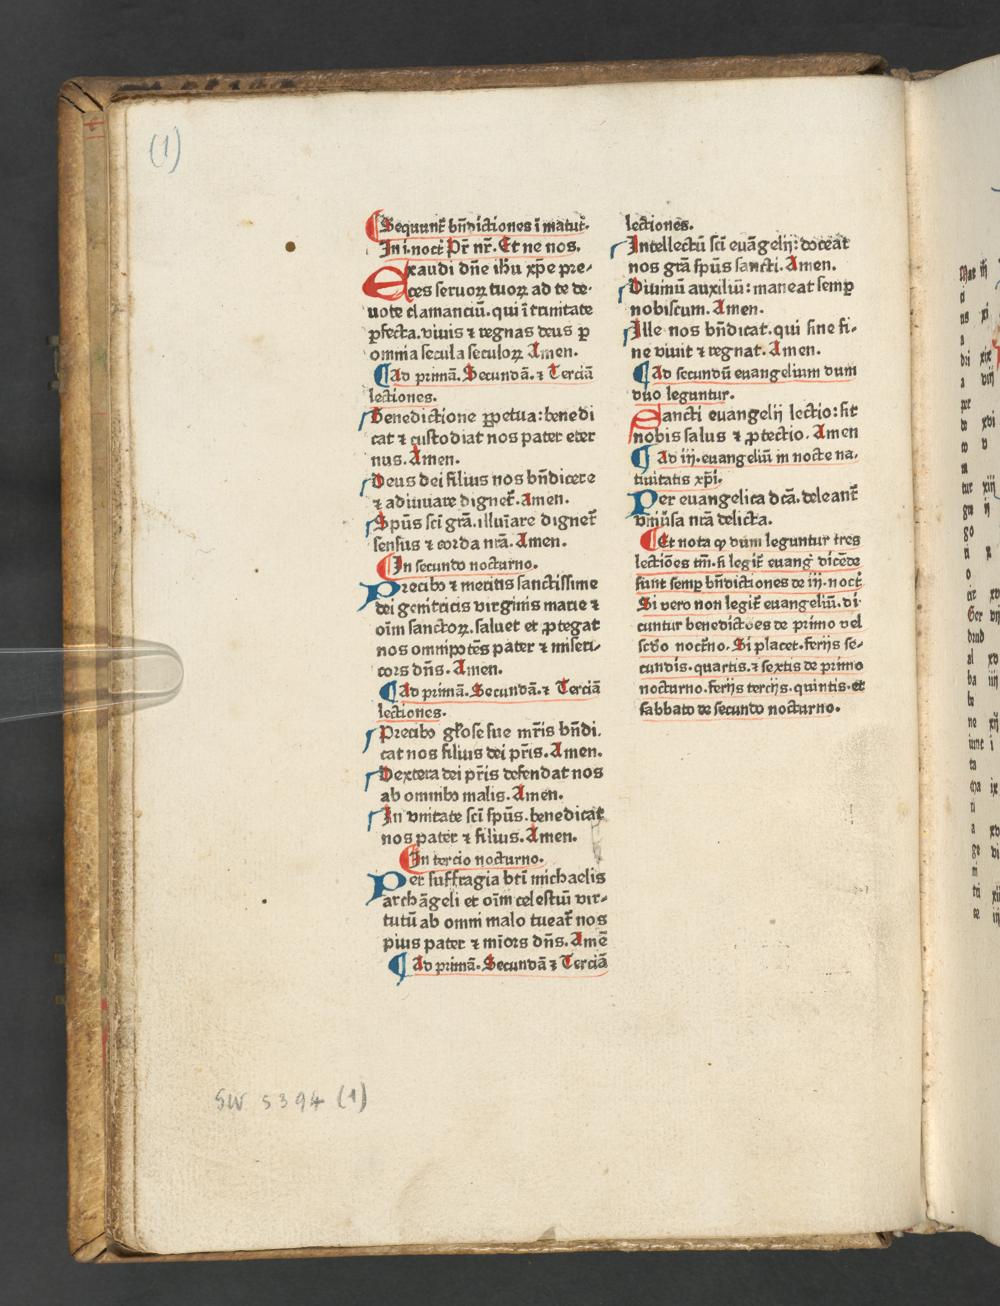 (1)
Sequunt᷑ bn̄dictiones ī matut᷑.
In i. noct᷑ Pr̄ nr̄. Et ne nos.
Exaudi dn̄e ih̄u xp̄e pre⸗
ces seruoꝝ tuoꝝ ad te de⸗
uote clamanciū. qui ī trinitate
ꝑfecta. viuis ⁊ regnas deus ꝑ
omnia secula seculoꝝ Amen.
¶ Ad primā. Secundā. ⁊ Terciā
lectiones.
Benedictione ꝑpetua: benedi
cat ⁊ custodiat nos pater eter
nus. Amen.
Deus dei filius nos bn̄dicere
⁊ adiuuare dignet᷑. Amen.
Spūs sc̄i grā. illuīare dignet᷑
sensus ⁊ corda nrā. Amen.
¶ In secundo nocturno.
Precibꝯ ⁊ meritis sanctissime
dei genitricis virginis marie ⁊
oīm sanctoꝝ. saluet et ꝓtegat
nos omnipotēs pater ⁊ miseri⸗
cors dn̄s. Amen.
¶ Ad primā. Secundā. ⁊ Terciā
lectiones.
Precibꝯ gl̄ose sue mr̄is bn̄di.
cat nos filius dei pr̄is. Amen.
Dextera dei pr̄is defendat nos
ab omnibꝯ malis. Amen.
In vnitate sc̄i spūs. benedicat
nos pater ⁊ filius. Amen.
¶ In tercio nocturno.
Per suffragia bt̄i michaelis
archāgeli et oīm celestiū vir⸗
tutū ab omni malo tueat᷑ nos
pius pater ⁊ mīors dn̄s. Amē
¶ Ad primā. Secundā ⁊ Terciā
lectiones.
Intellectū sc̄i euāgelij: doceat
nos grā spūs sancti. Amen.
Diuinū auxiliū: maneat semꝑ
nobiscum. Amen.
Ille nos bn̄dicat. qui sine fi⸗
ne viuit ⁊ regnat. Amen.
¶ Ad secundū euangelium dum
duo leguntur.
Sancti euangelij lectio: sit
nobis salus ⁊ ꝓtectio. Amen
¶ Ad iij. euangeliū in nocte na.
tiuitatis xp̄i.
Per euangelica dc̄a. deleant᷑
vniūsa nrā delicta.
¶ Et nota ꝙ dum leguntur tres
lectiōes tm̄. si legit᷑ euang᷑ dicēde
sunt semꝑ bn̄dictiones de iij. noct᷑
Si vero non legit᷑ euangeliū. di⸗
cuntur benedictōes de primo vel
scd̄o noct̄no. Si placet. ferijs se⸗
cundis. quartis. ⁊ sextis de primo
nocturno. ferijs tercijs. quintis. et
sabbato de secundo nocturno.
GW 5394 (1)